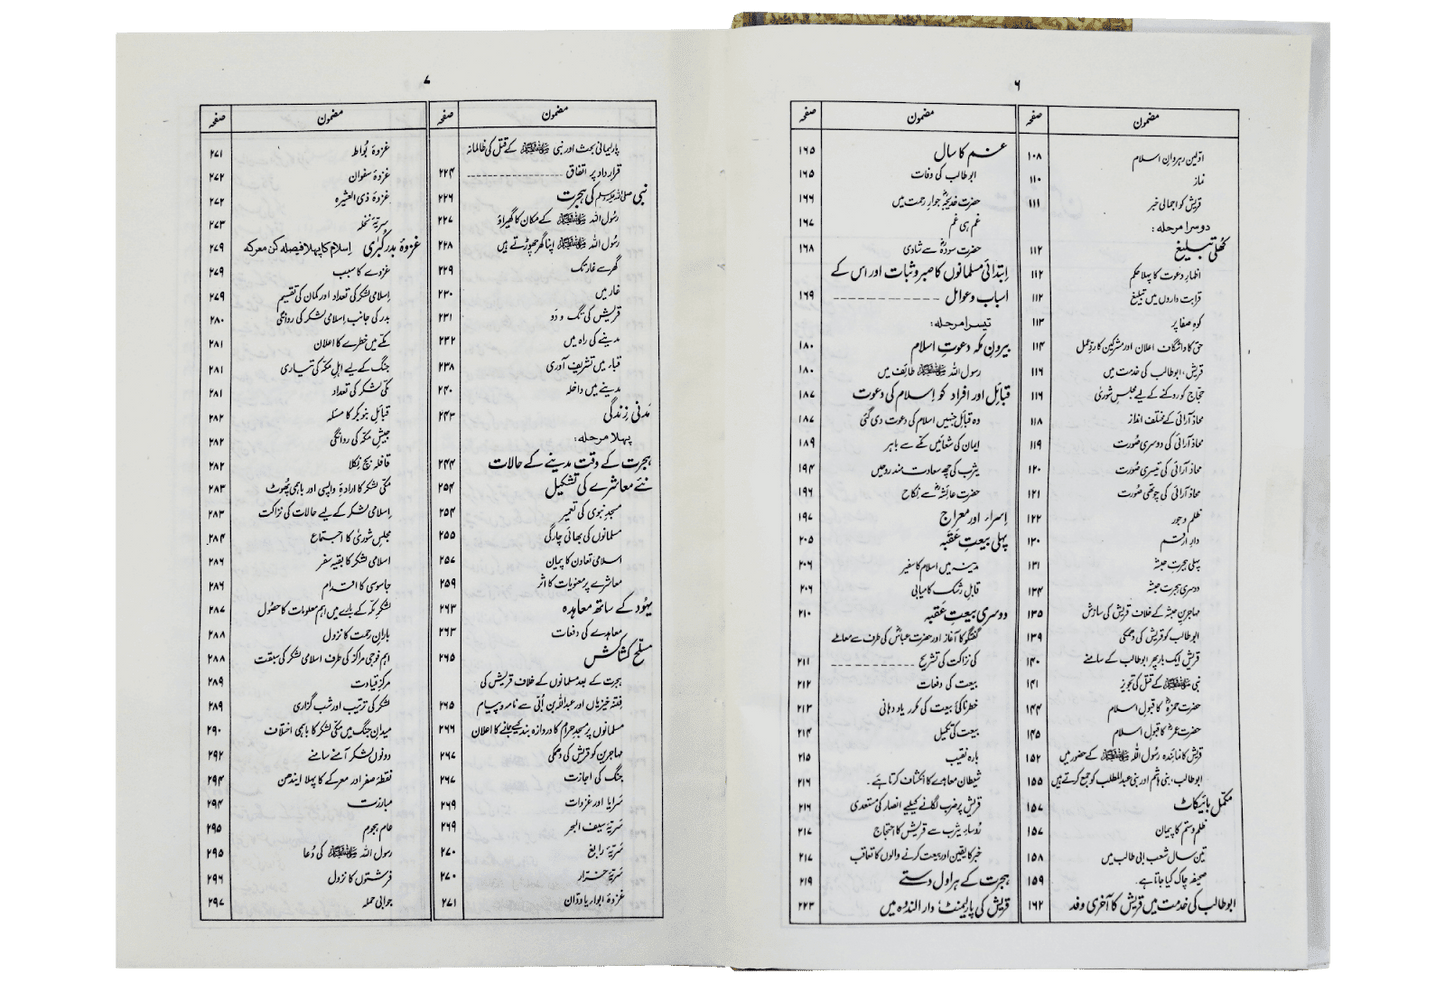 ۶
مضمون صفحہ
اوّلین رہروانِ اسلام ۱۰۸
نماز ۱۱۰
قریش کو اجمالی خبر ۱۱۱
دوسرا مرحلہ:
کھلی تبلیغ ۱۱۲
اظہارِ دعوت کا پہلا حکم ۱۱۲
قرابت داروں میں تبلیغ ۱۱۲
کوہِ صفا پر ۱۱۳
حق کا واشگاف اعلان اور مشرکین کا ردِّ عمل ۱۱۴
قریش، ابوطالب کی خدمت میں ۱۱۶
حجاج کو روکنے کے لیے مجلسِ شوریٰ ۱۱۶
محاذ آرائی کے مختلف انداز ۱۱۸
محاذ آرائی کی دوسری صُورت ۱۱۹
محاذ آرائی کی تیسری صُورت ۱۲۰
محاذ آرائی کی چوتھی صُورت ۱۲۱
ظلم و جور ۱۲۲
دارِ ارقم ۱۳۰
پہلی ہجرتِ حبشہ ۱۳۱
دوسری ہجرتِ حبشہ ۱۳۴
مہاجرینِ حبشہ کے خلاف قریش کی سازش ۱۳۵
ابوطالب کو قریش کی دھمکی ۱۳۹
قریش ایک بار پھر ابوطالب کے سامنے ۱۴۰
نبی ﷺ کے قتل کی تجویز ۱۴۱
حضرت حمزہؓ کا قبولِ اسلام ۱۴۴
حضرت عمرؓ کا قبولِ اسلام ۱۴۵
قریش کا نمائندہ رسُول اللہ ﷺ کے حضور میں ۱۵۲
ابوطالب، بنی ہاشم اور بنی عبدالمطلب کو جمع کرتے ہیں ۱۵۵
مکمل بائیکاٹ ۱۵۷
ظلم و ستم کا پیمان ۱۵۷
تین سال شعب ابی طالب میں ۱۵۸
صحیفہ چاک کیا جاتا ہے۔ ۱۵۹
ابوطالب کی خدمت میں قریش کا آخری وفد ۱۶۲
مضمون صفحہ
غم کا سال ۱۶۵
ابوطالب کی وفات ۱۶۵
حضرت خدیجہؓ جوارِ رحمت میں ۱۶۶
غم ہی غم ۱۶۷
حضرت سودہؓ سے شادی ۱۶۸
اِبتدائی مسلمانوں کا صبر و ثبات اور اس کے
اسباب و عوامل ۱۶۹
تیسرا مرحلہ:
بیرونِ مکہ دعوتِ اسلام ۱۸۰
رسول اللہ ﷺ طائف میں ۱۸۰
قبائل اور افراد کو اِسلام کی دعوت ۱۸۷
وہ قبائل جنہیں اسلام کی دعوت دی گئی ۱۸۷
ایمان کی شعائیں مکّے سے باہر ۱۸۹
یثرب کی چھ سعادت مند روحیں ۱۹۴
حضرت عائشہؓ سے نکاح ۱۹۶
اِسراء اور معراج ۱۹۷
پہلی بیعتِ عَقَبہ ۲۰۵
مدینہ میں اسلام کا سفیر ۲۰۶
قابلِ رشک کامیابی ۲۰۶
دوسری بیعتِ عَقَبہ ۲۱۰
گفتگو کا آغاز اور حضرت عباسؓ کی طرف سے معاملے
کی نزاکت کی تشریح ۲۱۱
بیعت کی دفعات ۲۱۲
خطرناکیٔ بیعت کی مکرر یاد دہانی ۲۱۳
بیعت کی تکمیل ۲۱۴
بارہ نقیب ۲۱۵
شیطان معاہدے کا انکشاف کرتا ہے۔ ۲۱۶
قریش پر ضرب لگانے کیلئے انصار کی مستعدی ۲۱۶
رُوساءِ یثرب سے قریش کا احتجاج ۲۱۷
خبر کا یقین اور بیعت کرنے والوں کا تعاقب ۲۱۷
ہجرت کے ہراول دستے ۲۱۹
قریش کی پارلیمنٹ دار الندوہ میں ۲۲۳
۷
مضمون صفحہ
پارلیمانی بحث اور نبی ﷺ کے قتل کی ظالمانہ
قرارداد پر اتفاق ۲۲۴
نبی صلی اللہ علیہ وسلم کی ہجرت ۲۲۶
رسُول اللہ ﷺ کے مکان کا گھیراؤ ۲۲۷
رسُول اللہ ﷺ اپنا گھر چھوڑتے ہیں ۲۲۸
گھر سے غار تک ۲۲۹
غار میں ۲۳۰
قریش کی تگ و دَو ۲۳۱
مدینے کی راہ میں ۲۳۲
قباء میں تشریف آوری ۲۳۸
مدینے میں داخلہ ۲۴۰
مَدنی زِندگی ۲۴۳
پہلا مرحلہ:
ہجرت کے وقت مدینے کے حالات ۲۴۴
نئے معاشرے کی تشکیل ۲۵۴
مسجدِ نبوی کی تعمیر ۲۵۴
مسلمانوں کی بھائی چارگی ۲۵۵
اسلامی تعاون کا پیمان ۲۵۷
معاشرے پر معنویات کا اثر ۲۵۹
یہُود کے ساتھ معاہدہ ۲۶۳
معاہدے کی دفعات ۲۶۳
مسلّح کشاکش ۲۶۵
ہجرت کے بعد مسلمانوں کے خلاف قریش کی
فتنہ خیزیاں اور عبداللہ بن اُبَیّ سے نامہ و پیام ۲۶۵
مسلمانوں پر مسجد حرام کا دروازہ بند کیے جانے کا اعلان ۲۶۶
مہاجرین کو قریش کی دھمکی ۲۶۷
جنگ کی اجازت ۲۶۷
سَرایا اور غزوات ۲۶۹
سَریّہ سیف البحر ۲۶۹
سَریّہ رابغ ۲۷۰
سَریّہ خرّار ۲۷۰
غزوہ ابواء یا ودّان ۲۷۱
مضمون صفحہ
غزوۂ بُواط ۲۷۱
غزوۂ سفوان ۲۷۲
غزوۂ ذی العشیرہ ۲۷۲
سریّہ نخلہ ۲۷۳
غزوۂ بدر کُبریٰ اِسلام کا پہلا فیصلہ کن معرکہ ۲۷۹
غزوے کا سبب ۲۷۹
اِسلامی لشکر کی تعداد اور کمان کی تقسیم ۲۷۹
بدر کی جانب اِسلامی لشکر کی روانگی ۲۸۰
مکّے میں خطرے کا اعلان ۲۸۱
جنگ کے لیے اہلِ مکّہ کی تیاری ۲۸۱
مکّی لشکر کی تعداد ۲۸۱
قبائلِ بنو بکر کا مسئلہ ۲۸۲
جیشِ مکّہ کی روانگی ۲۸۲
قافلہ بچ نِکلا ۲۸۲
مکّی لشکر کا ارادۂ واپسی اور باہمی پھُوٹ ۲۸۳
اِسلامی لشکر کے لیے حالات کی نزاکت ۲۸۳
مجلسِ شوریٰ کا اجتماع ۲۸۴
اسلامی لشکر کا بقیہ سفر ۲۸۶
جاسوسی کا اقدام ۲۸۶
لشکرِ مکّہ کے بارے میں اہم معلومات کا حصُول ۲۸۷
بارانِ رحمت کا نزول ۲۸۸
اہم فوجی مراکز کی طرف اسلامی لشکر کی سبقت ۲۸۸
مرکزِ قیادت ۲۸۹
لشکر کی ترتیب اور شب گزاری ۲۸۹
میدانِ جنگ میں مکّی لشکر کا باہمی اختلاف ۲۹۰
دونوں لشکر آمنے سامنے ۲۹۲
نقطۂ صفر اور معرکے کا پہلا ایندھن ۲۹۴
مبارزت ۲۹۴
عام ہجوم ۲۹۵
رسول اللہ ﷺ کی دُعا ۲۹۵
فرشتوں کا نزول ۲۹۶
جوابی حملہ ۲۹۷